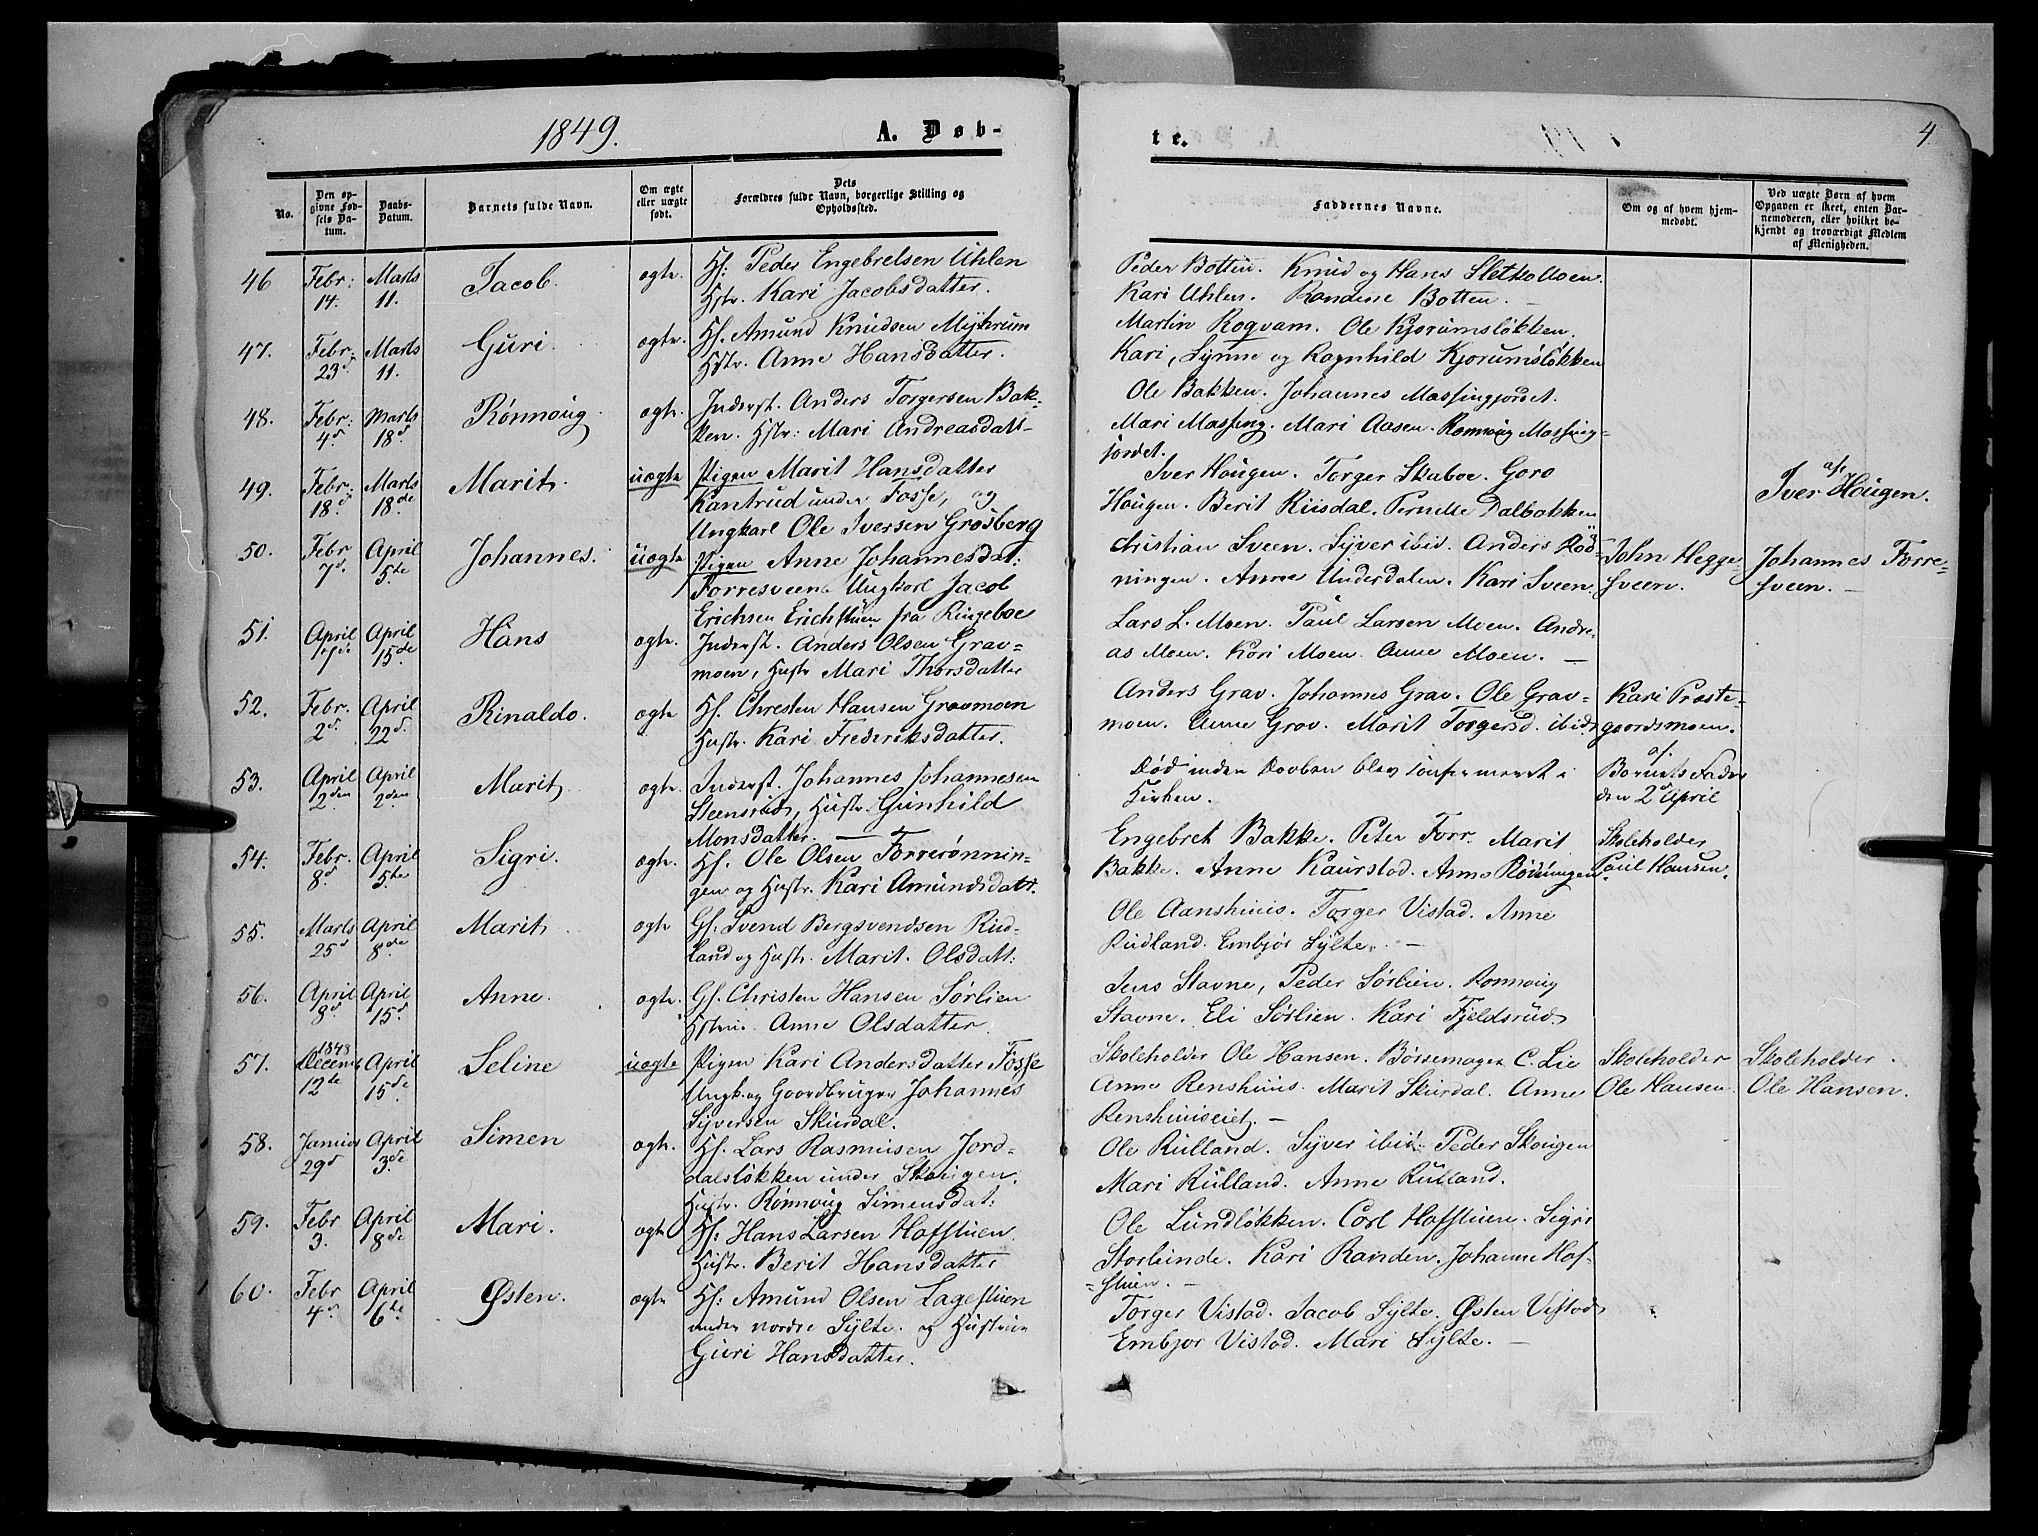 1849.
A. Døb-
te.
4
No.
Den op-
givne Fød-
sels Da-
tum.
Daabs-
Datum.
Barnets fulde Navn.
Om ægte
eller uægte
født.
Dets
Forældres fulde Navn, borgerlige Stilling og
Opholdssted.
Faddernes Navne.
Om og af hvem hjem-
medøbt.
Ved uægte Børn af hvem
Opgaven er skeet, enten Bar-
nemoderen, eller hvilket be-
kjendt og troværdigt Medlem
af Menigheden.
46 Febr: 14. Marts 11. Jacob. ægte. Hf: Peder Engebretsen Uhlen
Hstr. Kari Jacobsdatter.
Peder Botten. Knud og Hans Sletholsoen.
Kari Uhlen. Randine Botten. —
47. Febr: 23d. Marts 11. Guri ægte. Hf. Amund Knudsen Myhrum
Hstr. Anne Hansdatter.
Martin Rogvam. Ole Kjorumsløkken.
Kari, Synne og Ragnhild Kjorumsløkken
48. Febr: 4d Marts 18d. Rønnoug. ægte. Inderst. Anders Torgersen Bak-
ken. Hstr: Mari Andreasdatt-
Ole Bakken. Johannes Massingjordet.
Mari Massing. Mari Aasen. Ronnoug Massing-
jordet.
49. Febr: 18d. Marts 18de Marit. uægte Pigen Marit Hansdatter
Kantrud under Fosse, og
Ungkarl Ole Iversen Grosberg
Iver Hougen. Torger Skaboe. Goro
Hougen. Berit Riisdal. Pernelle Dalbakken
af
Iver Hougen.
50. Febr 7d. April 5te Johannes. uægte Pigen Anne Johannesdat:
Forresveen. Ungkarl Jacob
Erichsen Erichstuen fra Ringeboe
Christian Sveen. Syver ibid. Anders Rød-
ningen. Anne Underdalen. Kari Sveen.
John Hegge-
sveen.
Johannes Forre-
sveen. —
51. April April 15de. Hans ægte. Inderst. Anders Olsen Grav-
moen, Hustr Mari Thorsdatter
Lars L. Moen. Paul Larsen Moen. Andre-
as Moen. Kari Moen. Anne Moen. —
52. Febr. 2d. April 22d. Rinaldo. ægte Hf. Chresten Hansen Gravmoen
Hustr. Kari Frederiksdatter.
Anders Grav. Johannes Grav. Ole Grav-
moen. Anne Grav. Marit Torgersd. ibid
Kari Præste-
gaardsmoen.
53. April 2den April 2den. Marit ægte Inderst. Johannes Johannesen
Steensrud, Hustr. Gunhild
Monsdatter. —
Død inden Daaben blev confirmeret i
Kirken.
af
Barnets Fader
den 2d April
54. Febr. 8d April 5te Sigri. ægte. Hf. Ole Olsen Forrerønnin-
gen og Hustr. Kari Amundsdatt.
Engebret Bakke. Peter Forr. Marit
Bakke. Anne Kaurstad. Anne Rødningen.
Skoleholder
Paul Hansen.
55. Marts 25d April 8de Marit ægte Gf: Svend Bergsvendsen Rud-
land og Hustr. Marit. Olsdatt:
Ole Aanshuus. Torger Vistad. Anne
Rudland. Embjør Sylte. —
56. April 8d April 15d. Anne. ægte. Gf. Christen Hansen Sørlien
Hstrue. Anne Olsdatter.
Jens Stavne, Peder Sørlien. Ronnoug
Stavne. Eli Sørlien. Kari Fjeldsrud.
57. 1848 Decemb 12te April 15de Seline uægte Pigen Kari Andersdatter Fosse
Ungk. og Gaardbruger Johannes
Syversen Skurdal.
Skoleholder Ole Hansen. Børsemager C. Lie
Anne Renshuus. Marit Skurdal. Anne
Renshuuseiet. —
Skoleholder
Ole Hansen
Skoleholder
Ole Hansen.
58. Januar 29d April 3de. Simen ægte. Hf. Lars Rasmusen Jord-
dalsløkken under Skougen.
Hustr. Rønnoug Simensdat:
Ole Rulland. Syver ibid. Peder Skougen
Mari Rulland. Anne Rulland.
59. Febr 3. April 8de Mari. ægte Hf: Hans Larsen Hafstuen.
Hustr. Berit Hansdatter
Ole Lundløkken. Carl Hafstuen. Sigri
Storlunde. Kari Randen. Johanne Haf-
stuen. —
60. Febr 4d April 6te Østen. ægte Hf: Amund Olsen Lagestuen
under nordre Sylte. og Hustrue
Guri Hansdatter.
Torger Vistad. Jacob Sylte. Østen Vistad
Embjør Vistad. Mari Sylte. —